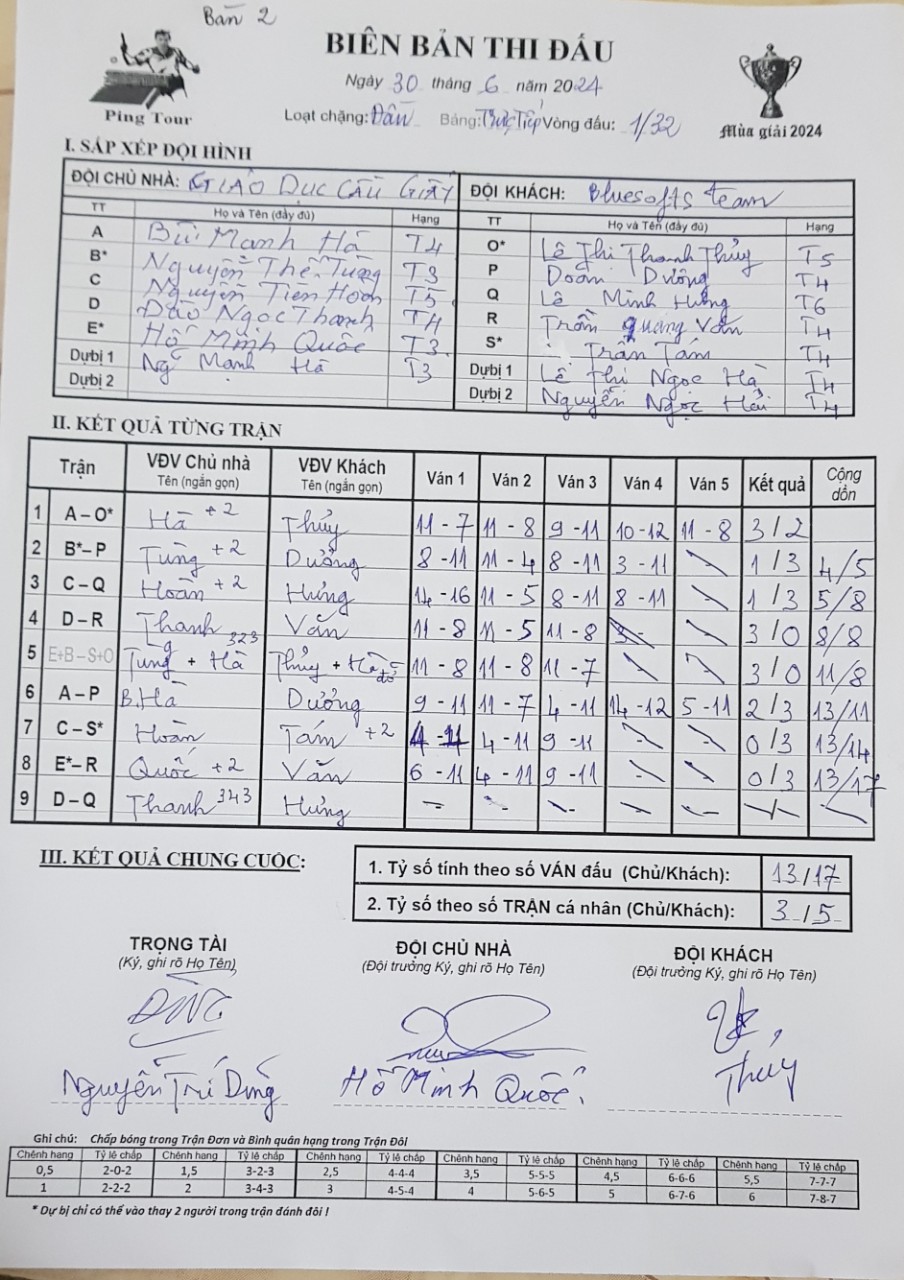 Bàn 2
BIÊN BẢN THI ĐẤU
Ngày 30 tháng 6 năm 2024
Ping Tour
Loạt chặng: Đầu Bảng: Trực Tiếp Vòng đấu: 1/32
Mùa giải 2024
I. SẮP XẾP ĐỘI HÌNH
ĐỘI CHỦ NHÀ: GIÁO DỤC CẦU GIẤY ĐỘI KHÁCH: Bluesofts team
TT Họ và Tên (đầy đủ) Hạng TT Họ và Tên (đầy đủ) Hạng
A Bùi Mạnh Hà T4 O* Lê Thị Thanh Thủy T5
B* Nguyễn Thế Tùng T3 P Doãn Dưỡng T4
C Nguyễn Tiến Hoàn T5 Q Lê Minh Hưng T6
D Đào Ngọc Thanh T4 R Trần Quang Vấn T4
E* Hồ Minh Quốc T3 S* Trần Tám T4
Dự bị 1 Ng Mạnh Hà T3 Dự bị 1 Lê Thị Ngọc Hà T4
Dự bị 2 Dự bị 2 Nguyễn Ngọc Hải T4
II. KẾT QUẢ TỪNG TRẬN
Trận VĐV Chủ nhà Tên (ngắn gọn) VĐV Khách Tên (ngắn gọn) Ván 1 Ván 2 Ván 3 Ván 4 Ván 5 Kết quả Cộng dồn
1 A – O* Hà +2 Thủy 11 - 7 11 - 8 9 - 11 10 - 12 11 - 8 3 / 2
2 B* – P Tùng +2 Dưỡng 8 - 11 11 - 4 8 - 11 3 - 11 1 / 3 4/5
3 C – Q Hoàn +2 Hưng 14 - 16 11 - 5 8 - 11 8 - 11 1 / 3 5/8
4 D – R Thanh Vấn 11 - 8 11 - 5 11 - 8 3 / 0 8/8
5 E+B – S+O Tùng + Hà 323 Thủy + Hà 11 - 8 11 - 8 11 - 7 3 / 0 11/8
6 A – P B.Hà Dưỡng 9 - 11 11 - 7 4 - 11 14 - 12 5 - 11 2 / 3 13/11
7 C – S* Hoàn Tám +2 4 - 11 4 - 11 9 - 11 0 / 3 13/14
8 E* – R Quốc +2 Vấn 6 - 11 4 - 11 9 - 11 0 / 3 13/17
9 D – Q Thanh 343 Hưng
III. KẾT QUẢ CHUNG CUỘC:
1. Tỷ số tính theo số VÁN đấu (Chủ/Khách): 13/17
2. Tỷ số theo số TRẬN cá nhân (Chủ/Khách): 3/5
TRỌNG TÀI ĐỘI CHỦ NHÀ ĐỘI KHÁCH
(Ký, ghi rõ Họ Tên) (Đội trưởng Ký, ghi rõ Họ Tên) (Đội trưởng Ký, ghi rõ Họ Tên)
Nguyễn Trí Dũng Hồ Minh Quốc. Thủy
Ghi chú: Chấp bóng trong Trận Đơn và Bình quân hạng trong Trận Đôi
Chênh hạng Tỷ lệ chấp Chênh hạng Tỷ lệ chấp Chênh hạng Tỷ lệ chấp Chênh hạng Tỷ lệ chấp Chênh hạng Tỷ lệ chấp Chênh hạng Tỷ lệ chấp
0,5 2-0-2 1,5 3-2-3 2,5 4-4-4 3,5 5-5-5 4,5 6-6-6 5,5 7-7-7
1 2-2-2 2 3-4-3 3 4-5-4 4 5-6-5 5 6-7-6 6 7-8-7
* Dự bị chỉ có thể vào thay 2 người trong trận đánh đôi !